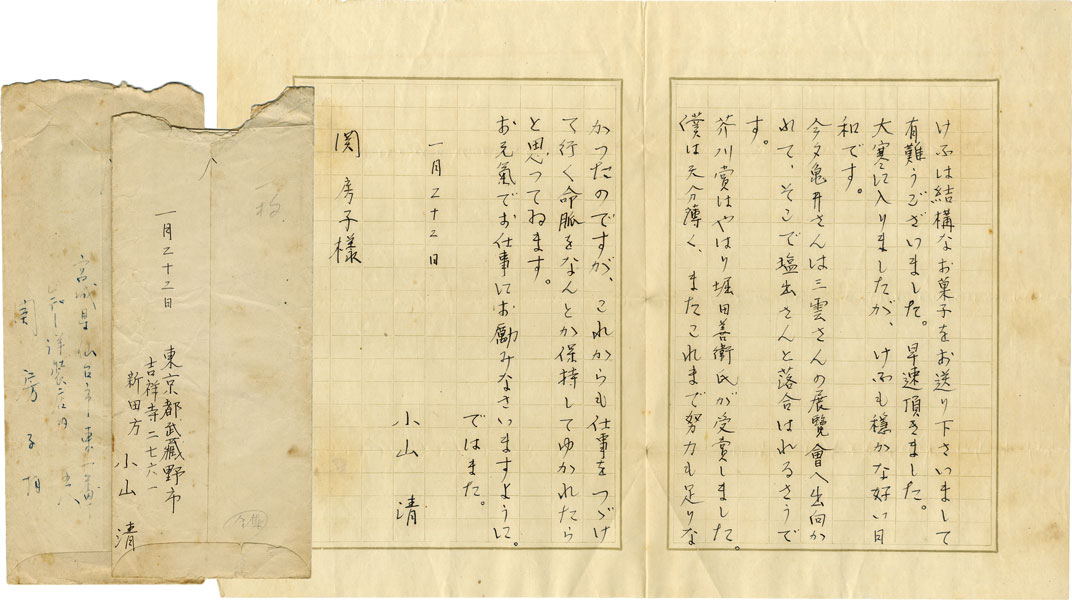 けふは結構なお菓子をお送り下さいまして
有難うございました。早速頂きました。
大寒に入りましたが、けふも穏かな好い日
和です。
今夕亀井さんは三雲さんの展覧會へ出向か
れて、そこで塩出さんと落合はれるさうで
す。
芥川賞はやはり堀田善衞氏が受賞しました。
僕は天分薄く、またこれまで努力も足りな
かつたのですが、これからも仕事をつゞけ
て行く命脈をなんとか保持してゆかれたら
と思つてゐます。
お元氣でお仕事にお励みなさいますように。
ではまた。
一月二十二日
小山 清
関 房子様
一月二十二日
東京都武藏野市
吉祥寺二七六一
新田方 小山 清
宮城県仙台市東一番
洋装店内
関 房子